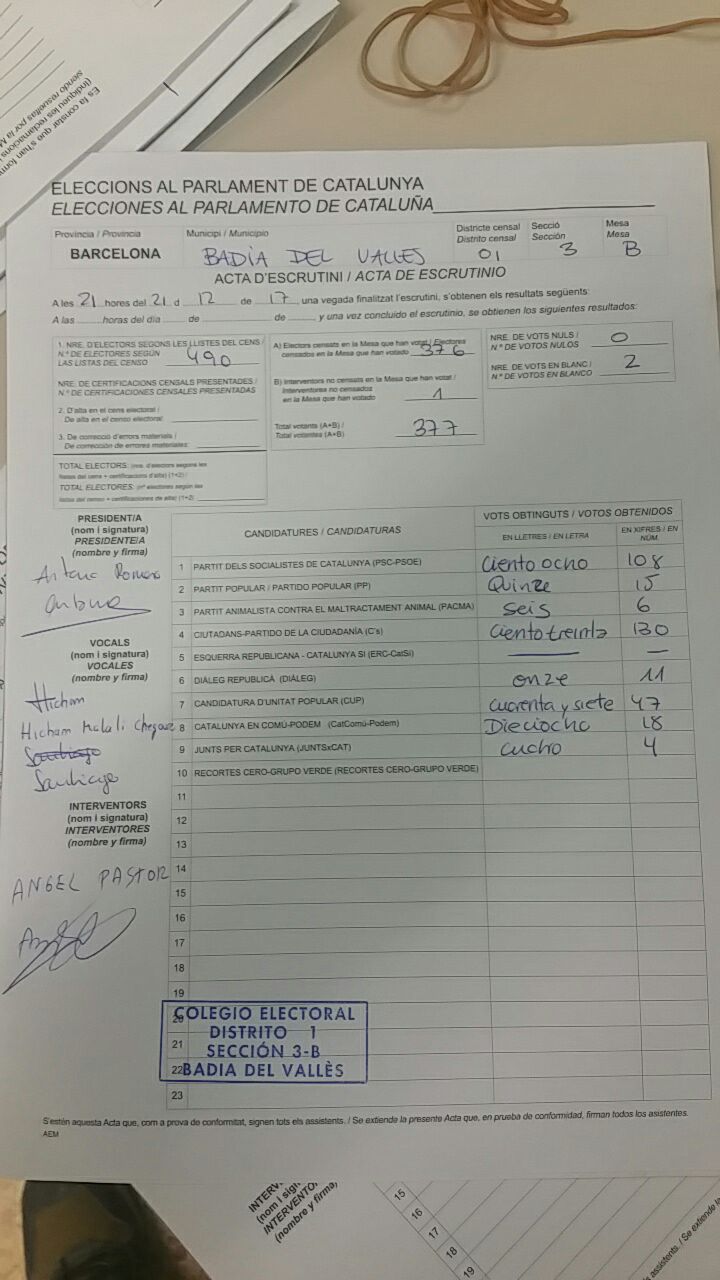 Es fa constar que s'han form
(indiqueu les reclamacions
siendo resueltas por la M
ELECCIONS AL PARLAMENT DE CATALUNYA
ELECCIONES AL PARLAMENTO DE CATALUÑA
Província / Provincia Municipi / Municipio Districte censal Secció Mesa
Distrito censal Sección Mesa
BARCELONA BADIA DEL VALLES 01 3 B
ACTA D'ESCRUTINI / ACTA DE ESCRUTINIO
A les 21 hores del 21 d 12 de 17, una vegada finalitzat l'escrutini, s'obtenen els resultats següents:
A las horas del día de de y una vez concluido el escrutinio, se obtienen los siguientes resultados:
1. NRE. D'ELECTORS SEGONS LES LLISTES DEL CENS /
N.º DE ELECTORES SEGÚN
LAS LISTAS DEL CENSO 490
NRE. DE CERTIFICACIONS CENSALS PRESENTADES /
N.º DE CERTIFICACIONES CENSALES PRESENTADAS
2. D'alta en el cens electoral /
De alta en el censo electoral:
3. De correcció d'errors materials /
De corrección de errores materiales:
TOTAL ELECTORS: (nre. d'electors segons les
llistes del cens + certificacions d'alta) (1+2) /
TOTAL ELECTORES: (nº electores según las
listas del censo + certificaciones de alta) (1+2)
A) Electors censats en la Mesa que han votat / Electores
censados en la Mesa que han votado 376
B) Interventors no censats en la Mesa que han votat /
Interventores no censados
en la Mesa que han votado 1
Total votants (A+B) /
Total votantes (A+B) 377
NRE. DE VOTS NULS /
N.º DE VOTOS NULOS 0
NRE. DE VOTS EN BLANC /
N.º DE VOTOS EN BLANCO 2
PRESIDENT/A
(nom i signatura)
PRESIDENTE/A
(nombre y firma)
Arturo Romero
VOCALS
(nom i signatura)
VOCALES
(nombre y firma)
Hicham
Hicham
Santiago
Santiago
INTERVENTORS
(nom i signatura)
INTERVENTORES
(nombre y firma)
ANGEL PASTOR
CANDIDATURES / CANDIDATURAS VOTS OBTINGUTS / VOTOS OBTENIDOS
EN LLETRES / EN LETRA EN XIFRES / EN NÚM.
1 PARTIT DELS SOCIALISTES DE CATALUNYA (PSC-PSOE) Ciento ocho 108
2 PARTIT POPULAR / PARTIDO POPULAR (PP) Quinze 15
3 PARTIT ANIMALISTA CONTRA EL MALTRACTAMENT ANIMAL (PACMA) seis 6
4 CIUTADANS-PARTIDO DE LA CIUDADANÍA (C's) Ciento treinta 130
5 ESQUERRA REPUBLICANA - CATALUNYA SÍ (ERC-CatSí) — —
6 DIÀLEG REPUBLICÀ (DIÀLEG) onze 11
7 CANDIDATURA D'UNITAT POPULAR (CUP) cuarenta y siete 47
8 CATALUNYA EN COMÚ-PODEM (CatComú-Podem) Dieciocho 18
9 JUNTS PER CATALUNYA (JUNTSxCAT) cuatro 4
10 RECORTES CERO-GRUPO VERDE (RECORTES CERO-GRUPO VERDE)
11
12
13
14
15
16
17
18
19
20
21
22
23
COLEGIO ELECTORAL
DISTRITO 1
SECCIÓN 3-B
BADIA DEL VALLÈS
S'estén aquesta Acta que, com a prova de conformitat, signen tots els assistents. / Se extiende la presente Acta que, en prueba de conformidad, firman todos los asistentes.
AEM
INTERV
(nom i sign
INTERVENTO
(nombre y firma)
15
16
17
18
19
assistents. / Se extiende la